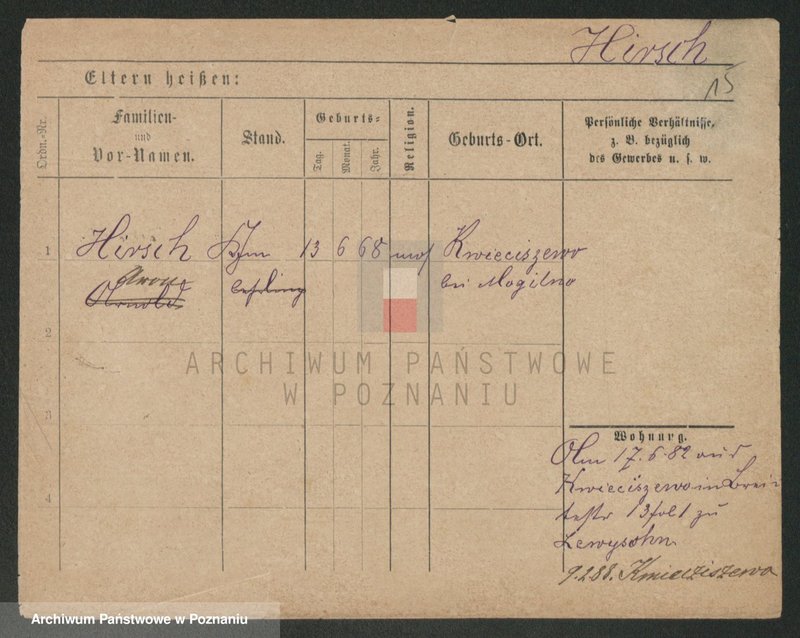 Hirsch
15
Eltern heißen:
Ordn.-Nr.
Familien-
und
Vor-Namen.
Stand.
Geburts-
Tag.
Monat.
Jahr.
Religion.
Geburts-Ort.
Persönliche Verhältnisse,
z. B. bezüglich
des Gewerbes u. s. w.
1 Hirsch Kfm 13 6 68 mos Kwieciszewo
Aron
Arnold lehrling bei Mogilno
2
3
4
ARCHIWUM PAŃSTWOWE
W POZNANIU
Wohnung.
Am 17.6.82 aus
Kwieciszewo in
13 zu
Lewysohn
9.2.88. Kwieciszewo
Archiwum Państwowe w Poznaniu